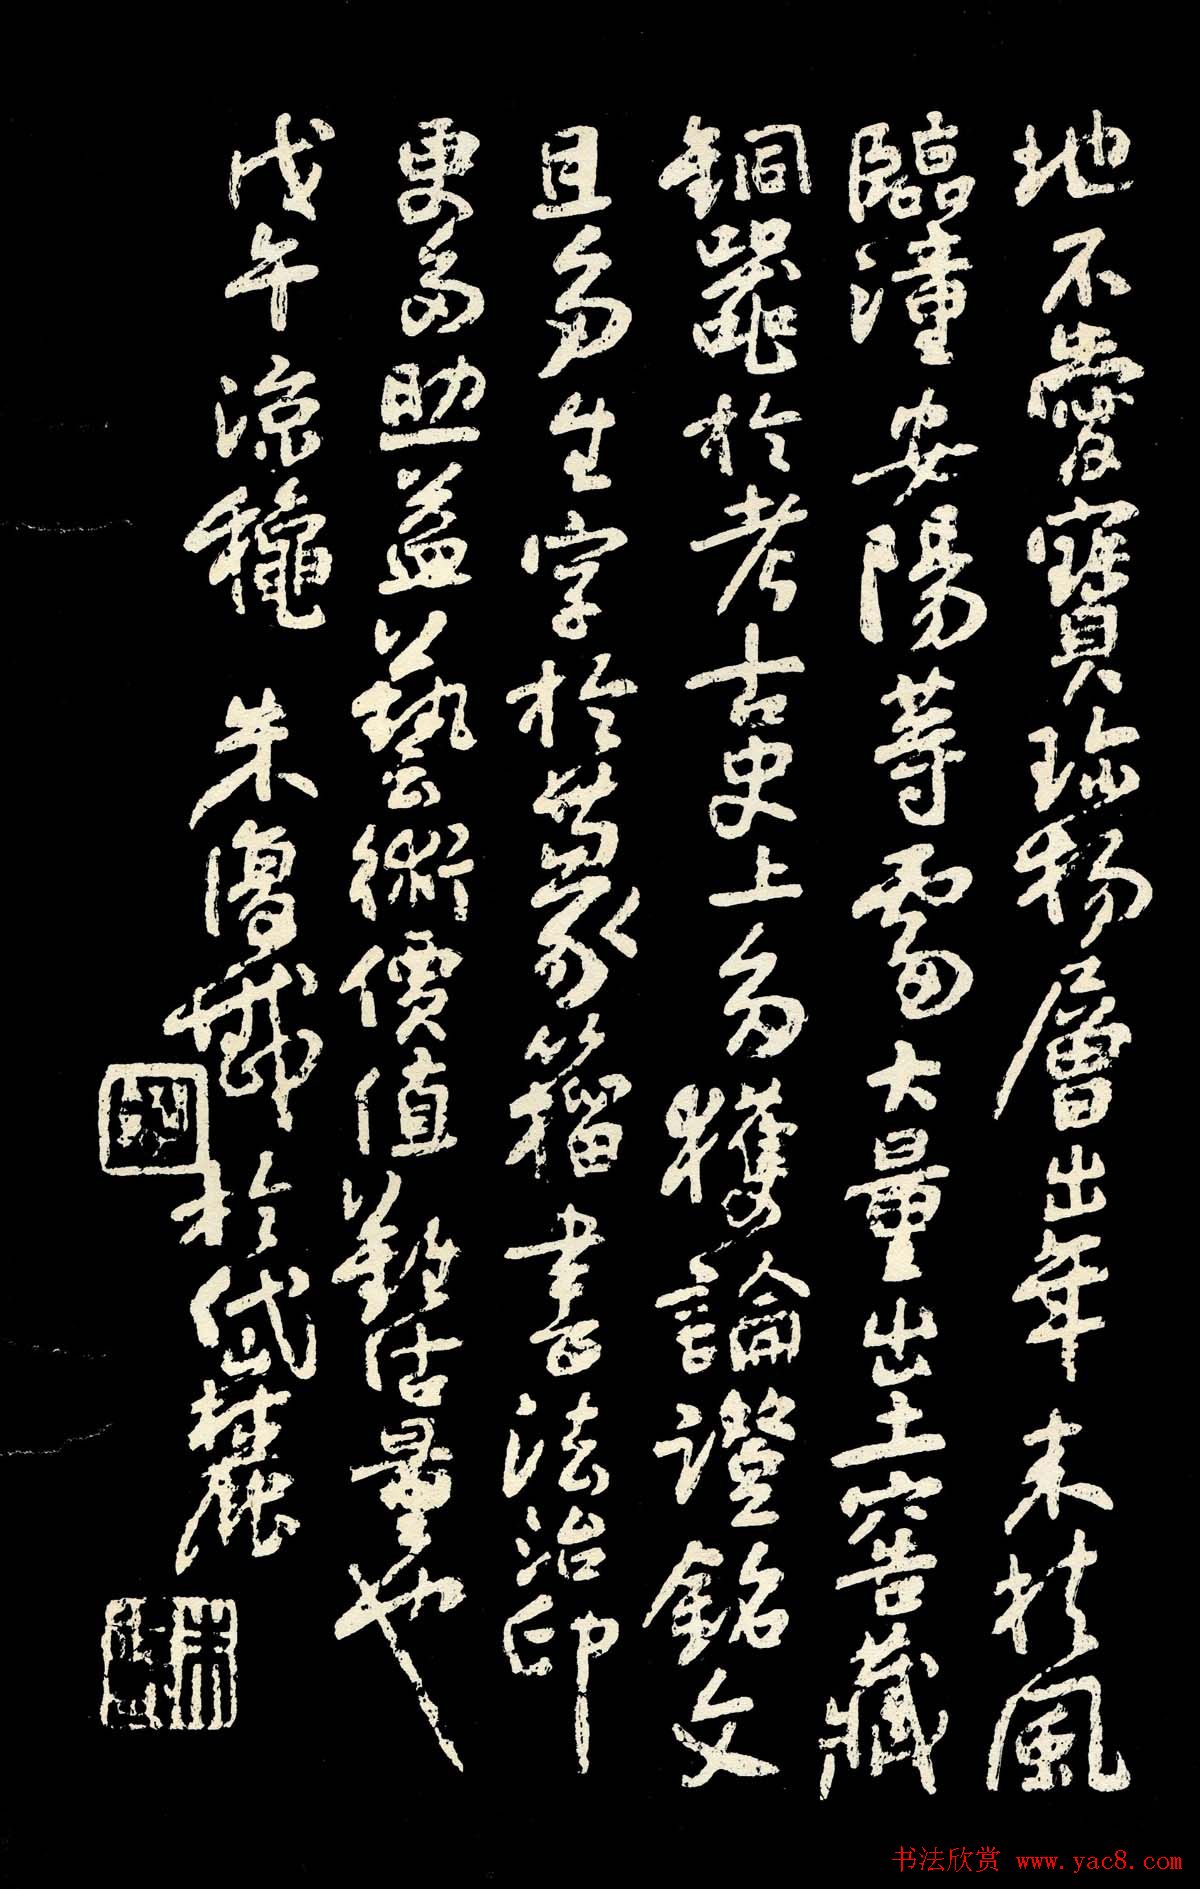 地不愛寶珍物層出年末扶風
臨潼安陽等處大量出土窖藏
銅器於考古史上多獲論證銘文
且多生字於篆籀書法治印
更多助益藝術價值難估量也
戊午涼龝 朱復戡於岱麓
朱
书法欣赏 www.yac8.com